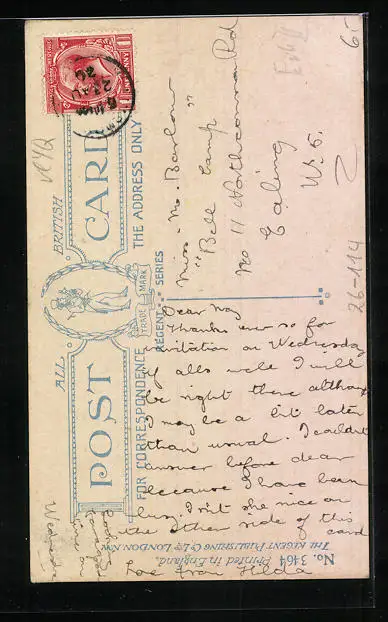 ALL BRITISH
POST CARD
TRADE MARK
REGENT SERIES
FOR CORRESPONDENCE
THE ADDRESS ONLY
Miss. M. Barlow
"Bell Camp"
No 11 Northcommon Rd
Ealing
W.5.
Dear May
Thanks ever so for
invitation on Wednesday
if alls well I will
be right there although
I may be a bit later
than usual. I couldn't
answer before dear
because I have been
busy. Isn't she nice on
the other side of this
card
Love from Hilda
Wednesday
No. 3464 Printed in England.
THE REGENT PUBLISHING Co Ltd LONDON NW
26-114
6-